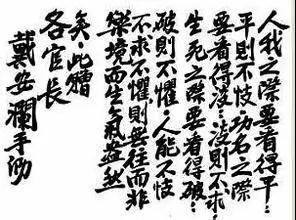 人我之際要看得平…
平則不忮…功名之際
要看得淡…淡則不求…
生死之際要看得破…
破則不懼…人能不忮
不求不懼則無往而非
樂境而生氣盎然
矣…此贈
各官長
戴安瀾手泐